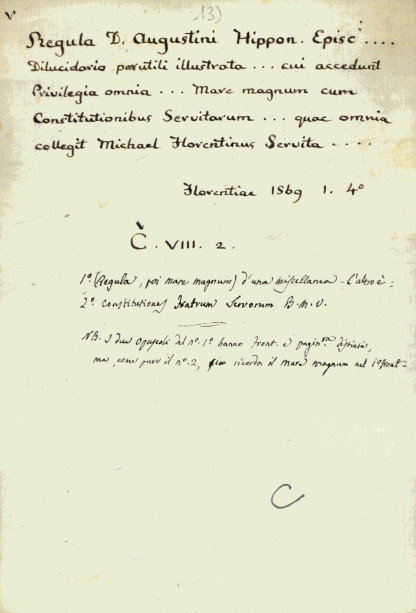 V
13)
Regula D. Augustini Hippon. Episc. ....
Dilucidario perutili illustrata ... cui accedunt
Privilegia omnia ... Mare magnum cum
Constitutionibus Servitarum ... quae omnia
collegit Michael Florentinus Servita ....
Florentiae 1569 1. 4º
C. VIII. 2.
1º (Regula, poi mare magnum) d'una miscellanea. L'altro è:
2º Constitutiones Fratrum Servorum B. M. V.
NB. I due opuscoli del nº 1º hanno front. e pagin.ne distinta,
ma, come pure il nº 2, ricorda il mare magnum nel 1º front.
C